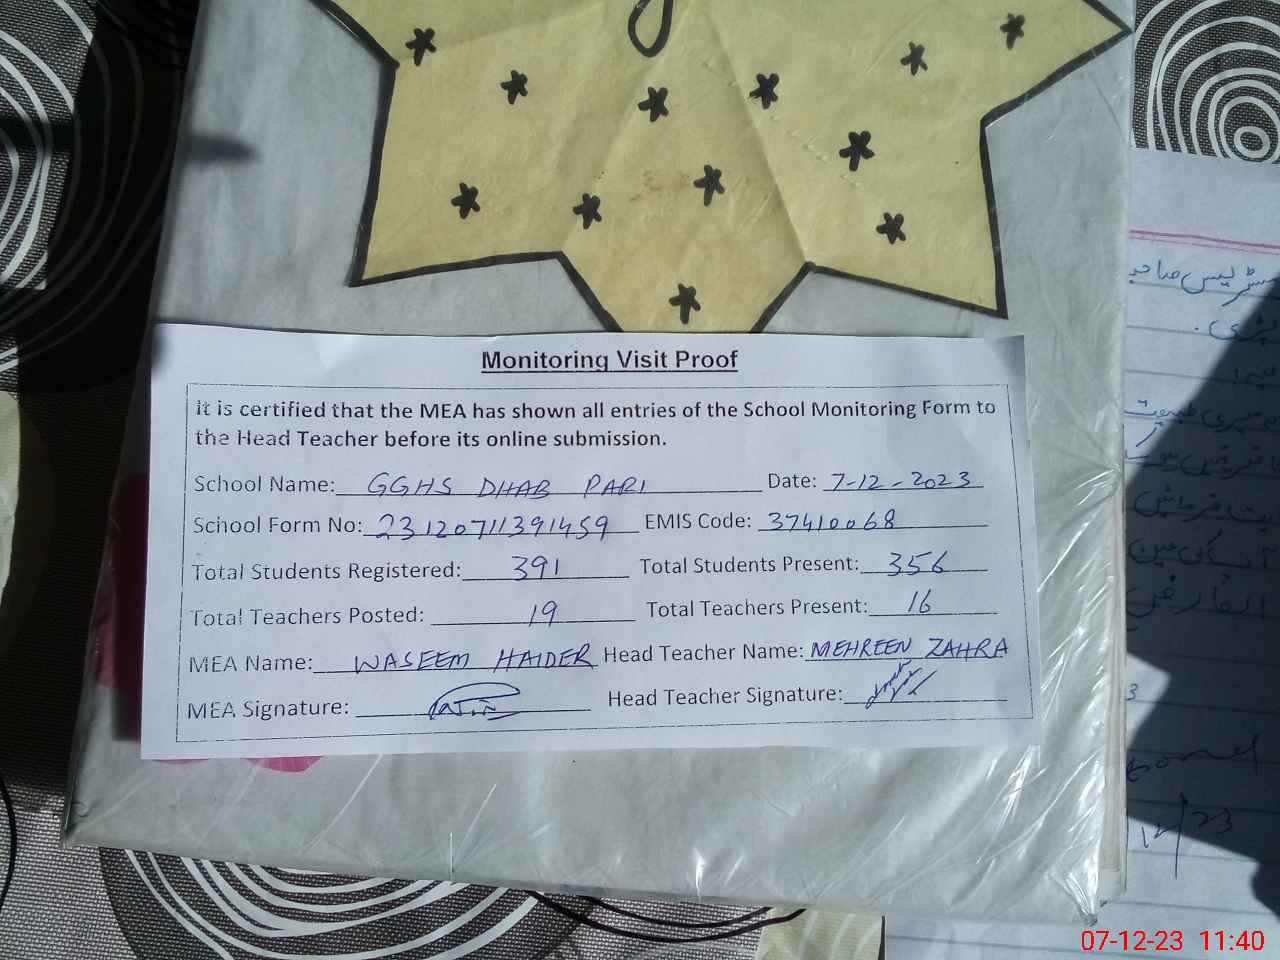 Monitoring Visit Proof
It is certified that the MEA has shown all entries of the School Monitoring Form to
the Head Teacher before its online submission.
School Name: GGHS DHAB PARI Date: 7-12-2023
School Form No: 23120711391459 EMIS Code: 37410068
Total Students Registered: 391 Total Students Present: 356
Total Teachers Posted: 19 Total Teachers Present: 16
MEA Name: WASEEM HAIDER Head Teacher Name: MEHREEN ZAHRA
MEA Signature: Head Teacher Signature:
07-12-23 11:40